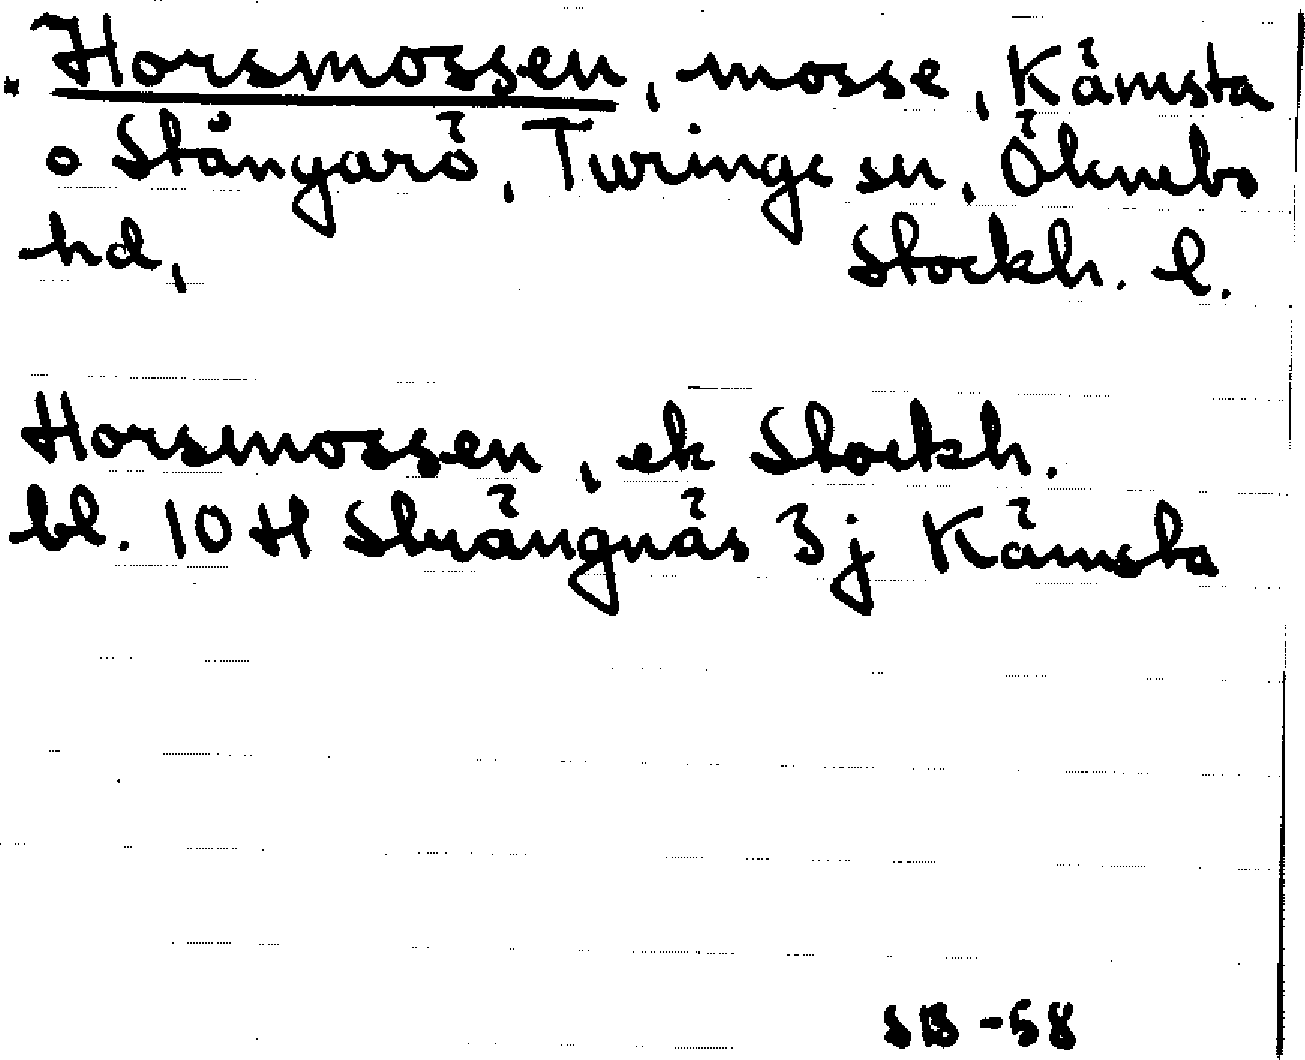 Horsmossen, mosse, Kämsta
o Stångarö, Turinge sn, Öknebo
hd, Stockh. l.
Horsmossen, ek Stockh.
bl. 10 H Strängnäs 3j Kämsta
SB -58